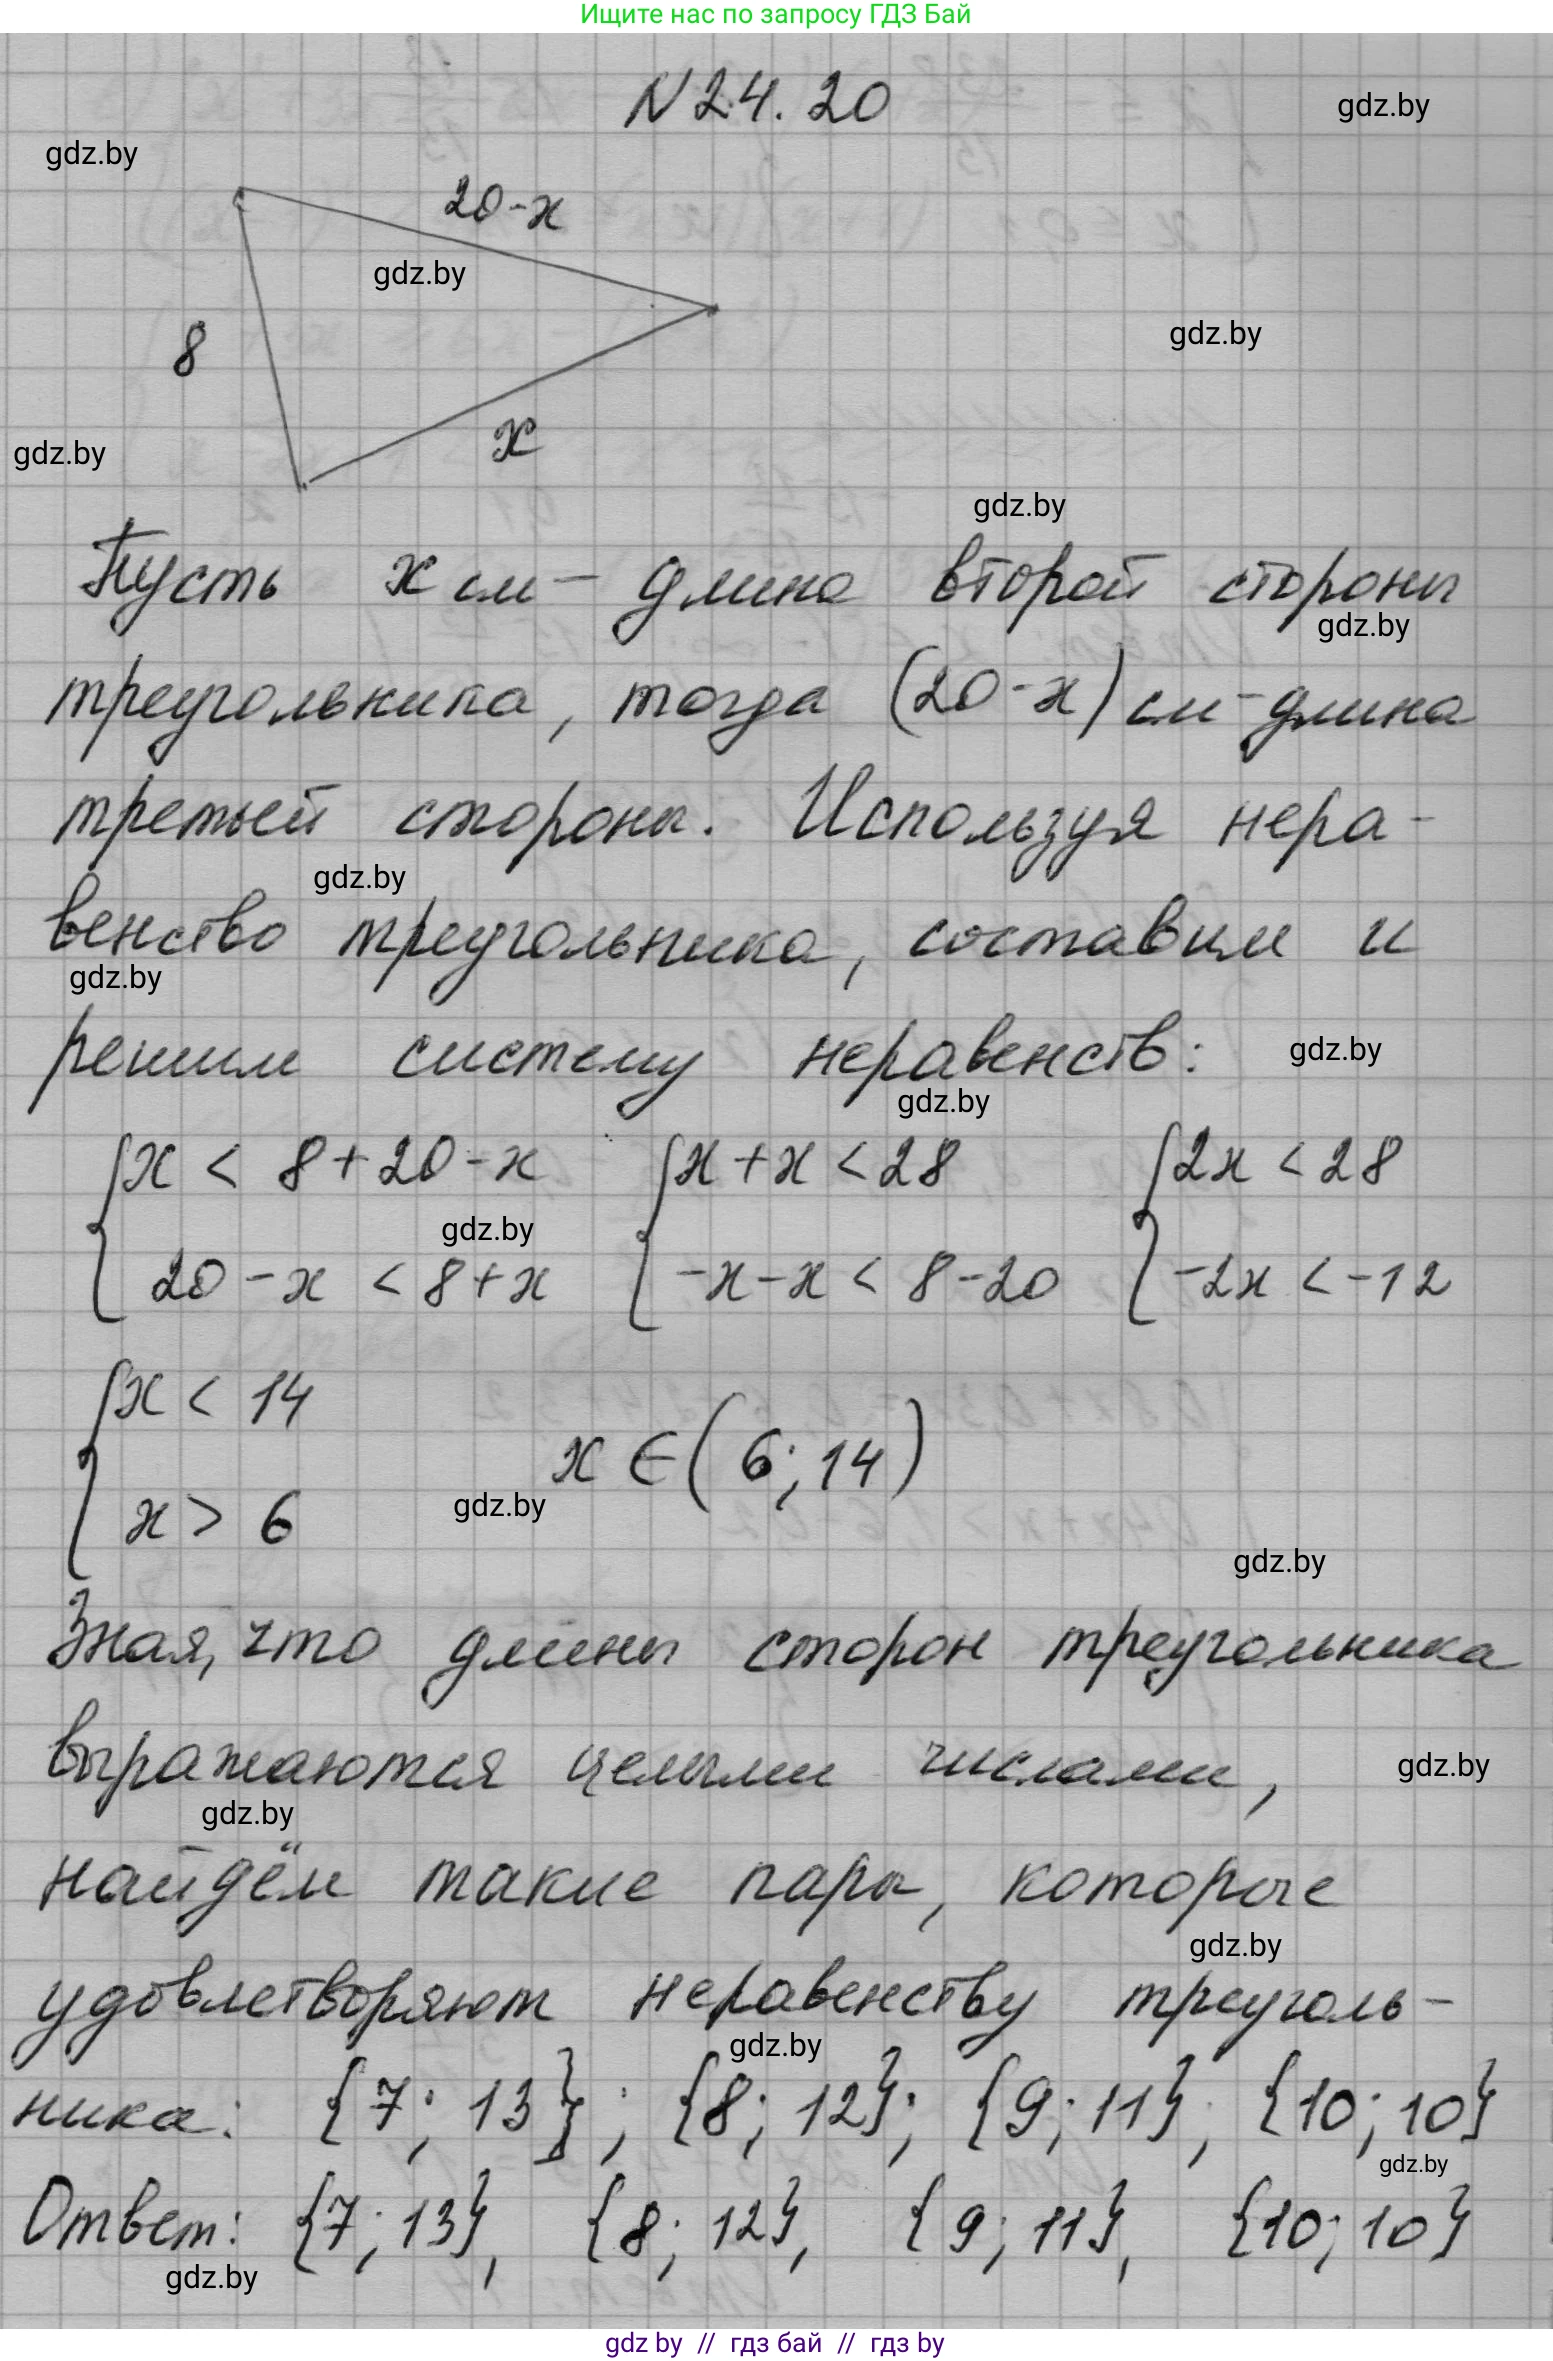 Ищите нас по запросу ГДЗ Бай
N 24.20
gdz.by
gdz.by
20-x
gdz.by
8
gdz.by
gdz.by
x
gdz.by
Пусть x см - длина второй стороны
gdz.by
треугольника, тогда (20-x) см - длина
третьей стороны. Используя нера-
gdz.by
венство треугольника, составим и
gdz.by
решим систему неравенств:
gdz.by
gdz.by
{ x < 8+20-x { x+x < 28 { 2x < 28
gdz.by
20-x < 8+x -x-x < 8-20 -2x < -12
{ x < 14
x ∈ (6; 14)
x > 6
gdz.by
gdz.by
Зная, что длины сторон треугольника
выражаются целыми числами,
gdz.by
gdz.by
найдём такие пары, которые
gdz.by
удовлетворяют неравенству треуголь-
gdz.by
ника: {7; 13}; {8; 12}; {9; 11}; {10; 10}
gdz.by
Ответ: {7; 13}, {8; 12}, {9; 11}, {10; 10}
gdz.by
gdz by // гдз бай // гдз by